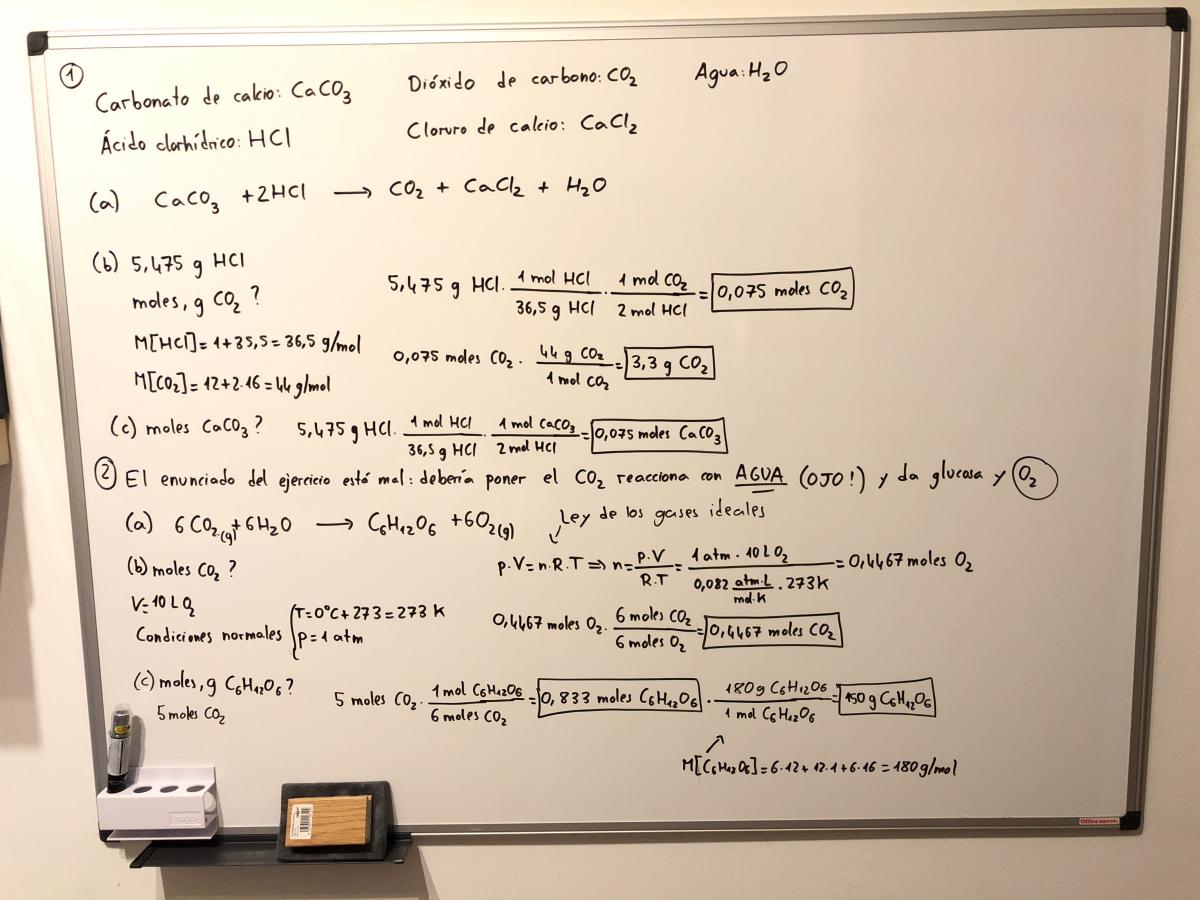 ① Carbonato de calcio: CaCO₃ Dióxido de carbono: CO₂ Agua: H₂O
Ácido clorhídrico: HCl Cloruro de calcio: CaCl₂
(a) CaCO₃ + 2HCl ⟶ CO₂ + CaCl₂ + H₂O
(b) 5,475 g HCl
moles, g CO₂ ?
M[HCl] = 1+35,5 = 36,5 g/mol
M[CO₂] = 12+2·16 = 44 g/mol
5,475 g HCl · (1 mol HCl / 36,5 g HCl) · (1 mol CO₂ / 2 mol HCl) = 0,075 moles CO₂
0,075 moles CO₂ · (44 g CO₂ / 1 mol CO₂) = 3,3 g CO₂
(c) moles CaCO₃? 5,475 g HCl · (1 mol HCl / 36,5 g HCl) · (1 mol CaCO₃ / 2 mol HCl) = 0,075 moles CaCO₃
② El enunciado del ejercicio está mal: debería poner el CO₂ reacciona con AGUA (OJO!) y da glucosa y O₂
(a) 6CO₂(g) + 6H₂O ⟶ C₆H₁₂O₆ + 6O₂(g)
Ley de los gases ideales
(b) moles CO₂ ?
V = 10 L O₂
Condiciones normales { T = 0°C + 273 = 273 K
p = 1 atm
p·V = n·R·T ⇒ n = p·V / R·T = (1 atm · 10 L O₂) / (0,082 atm·L / mol·K · 273 K) = 0,4467 moles O₂
0,4467 moles O₂ · (6 moles CO₂ / 6 moles O₂) = 0,4467 moles CO₂
(c) moles, g C₆H₁₂O₆?
5 moles CO₂
5 moles CO₂ · (1 mol C₆H₁₂O₆ / 6 moles CO₂) = 0,833 moles C₆H₁₂O₆ · (180 g C₆H₁₂O₆ / 1 mol C₆H₁₂O₆) = 150 g C₆H₁₂O₆
M[C₆H₁₂O₆] = 6·12 + 12·1 + 6·16 = 180 g/mol
nobo
Office DEPOT